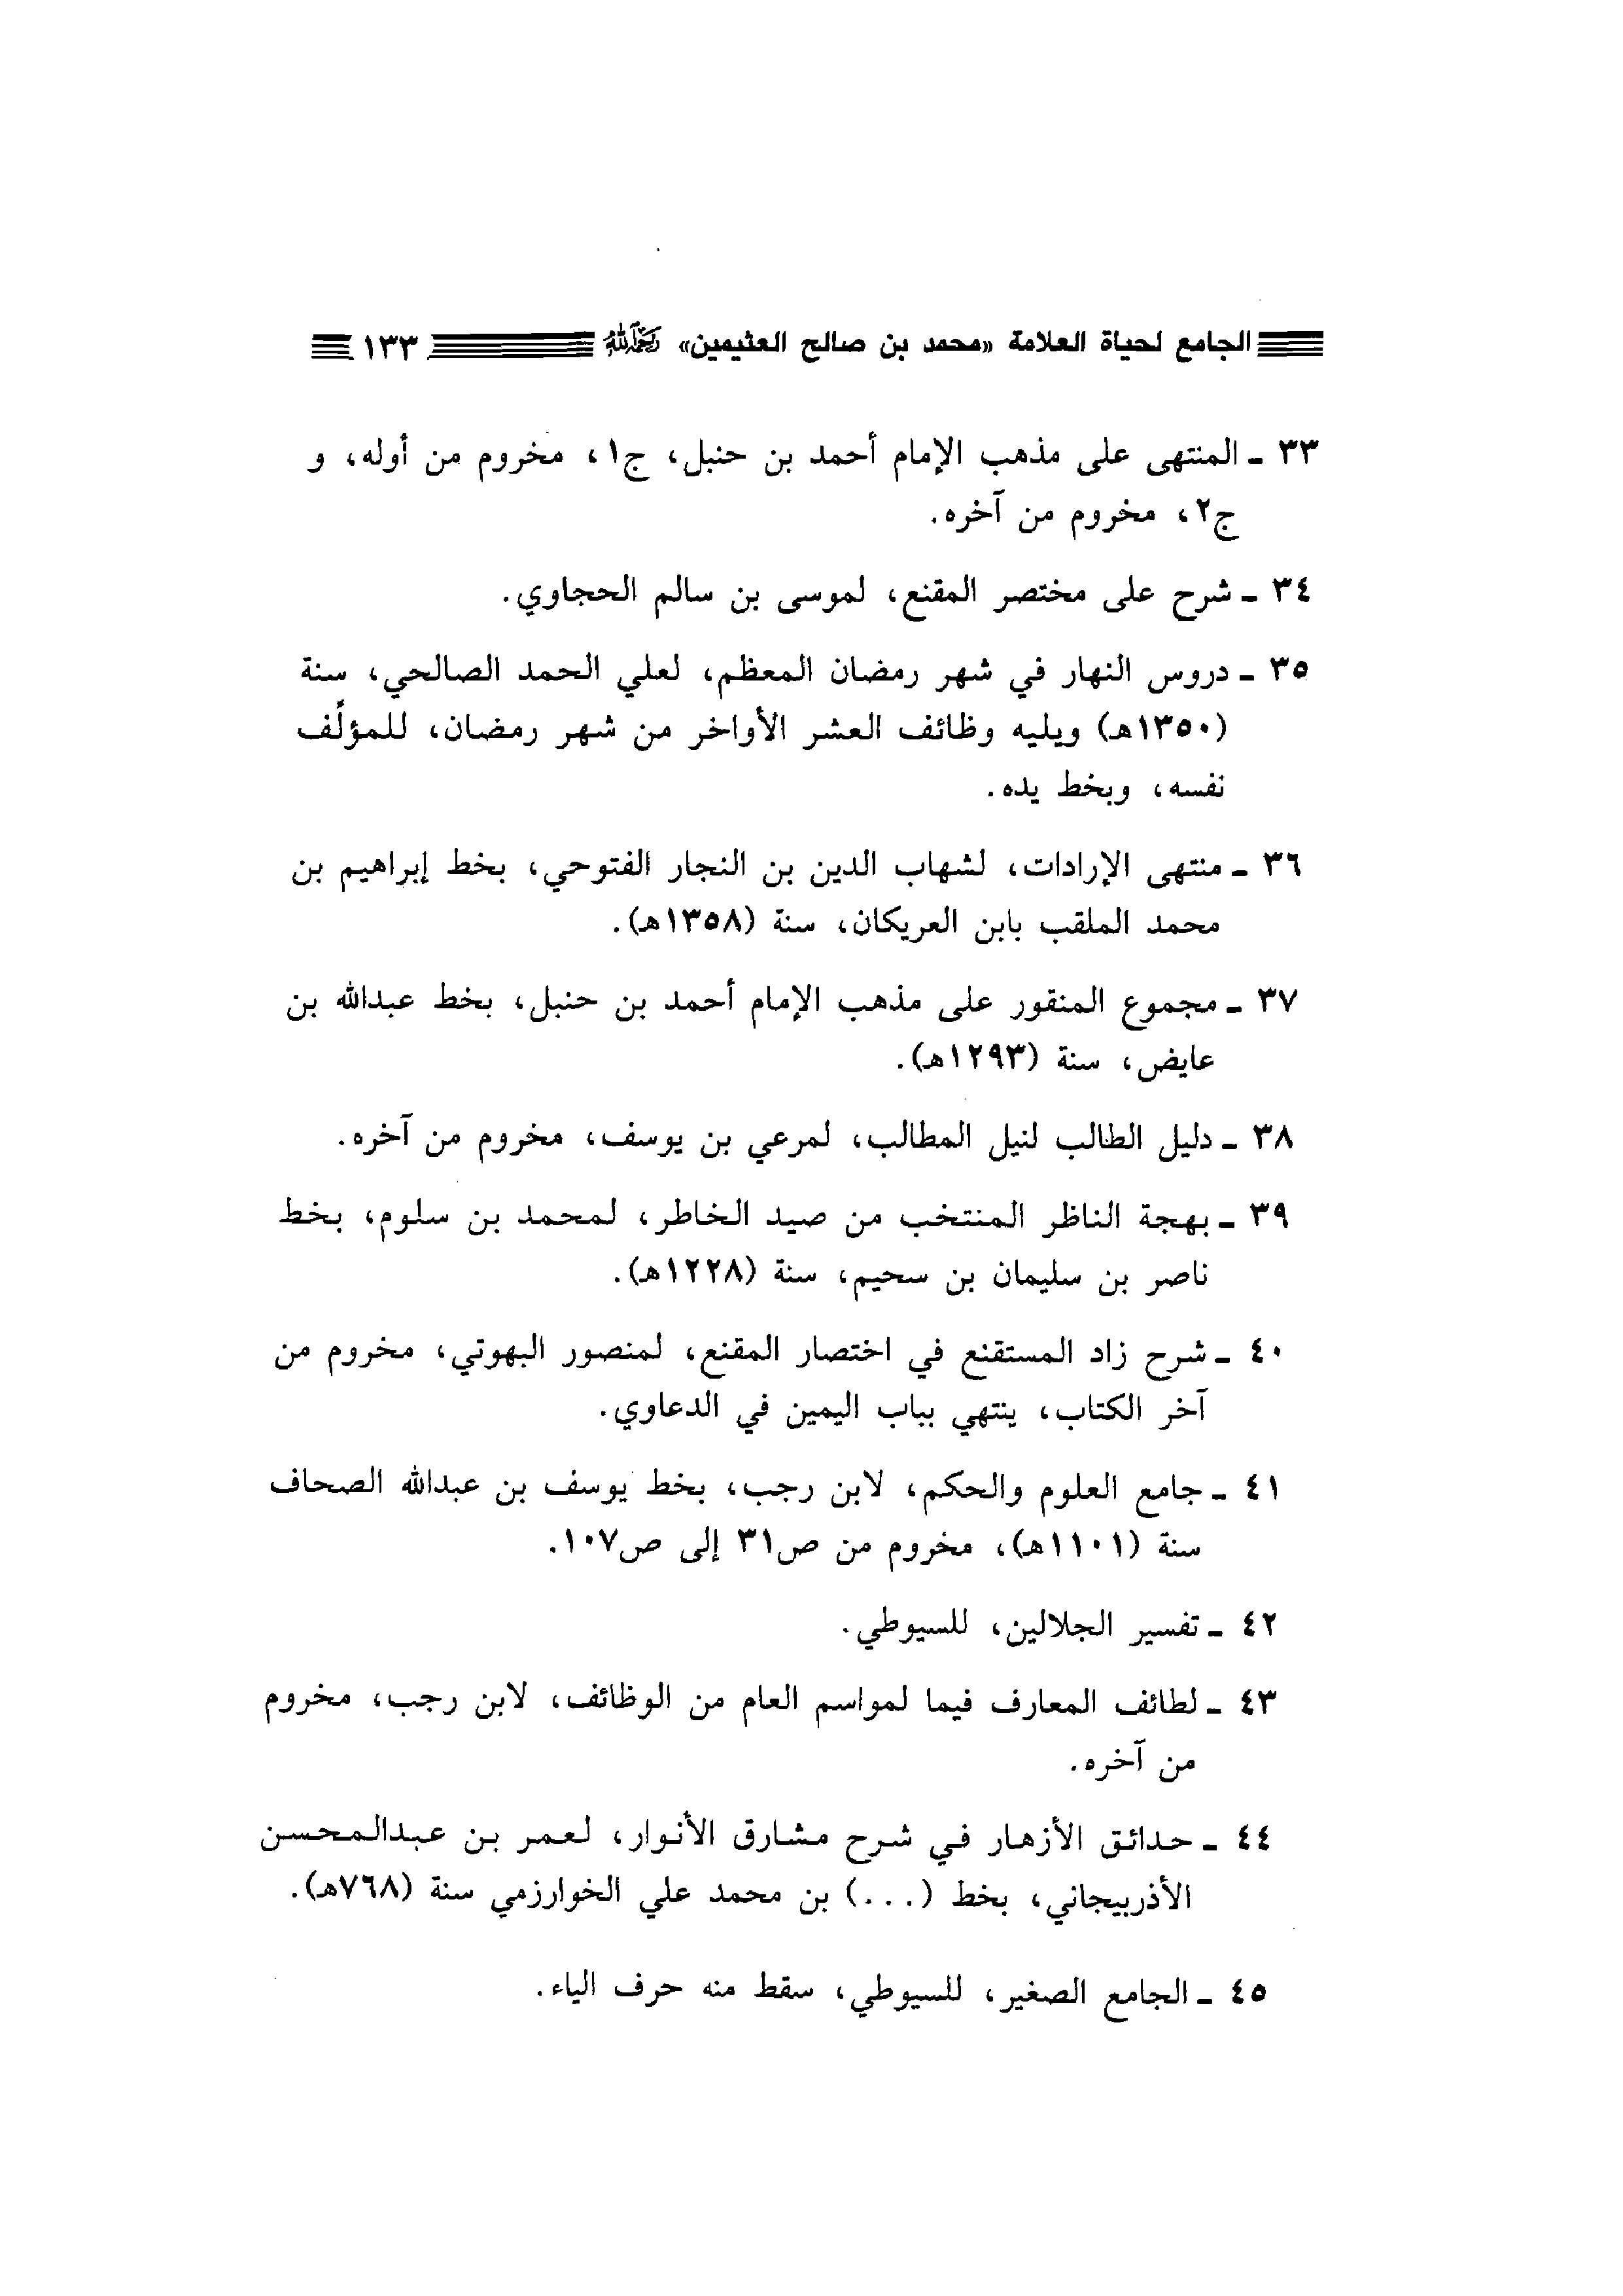 الجامع لحياة العلامة «محمد بن صالح العثيمين» رحمه الله ١٣٣
٣٣ ـ المنتهى على مذهب الإمام أحمد بن حنبل، ج١، مخروم من أوله، و
ج٢، مخروم من آخره.
٣٤ ـ شرح على مختصر المقنع، لموسى بن سالم الحجاوي.
٣٥ ـ دروس النهار في شهر رمضان المعظم، لعلي الحمد الصالحي، سنة
(١٣٥٠هـ) ويليه وظائف العشر الأواخر من شهر رمضان، للمؤلِّف
نفسه، وبخط يده.
٣٦ ـ منتهى الإرادات، لشهاب الدين بن النجار الفتوحي، بخط إبراهيم بن
محمد الملقب بابن العريكان، سنة (١٣٥٨هـ).
٣٧ ـ مجموع المنقور على مذهب الإمام أحمد بن حنبل، بخط عبدالله بن
عايض، سنة (١٢٩٣هـ).
٣٨ ـ دليل الطالب لنيل المطالب، لمرعي بن يوسف، مخروم من آخره.
٣٩ ـ بهجة الناظر المنتخب من صيد الخاطر، لمحمد بن سلوم، بخط
ناصر بن سليمان بن سحيم، سنة (١٢٢٨هـ).
٤٠ ـ شرح زاد المستقنع في اختصار المقنع، لمنصور البهوتي، مخروم من
آخر الكتاب، ينتهي بباب اليمين في الدعاوي.
٤١ ـ جامع العلوم والحكم، لابن رجب، بخط يوسف بن عبدالله الصحاف
سنة (١١٠١هـ)، مخروم من ص٣١ إلى ص١٠٧.
٤٢ ـ تفسير الجلالين، للسيوطي.
٤٣ ـ لطائف المعارف فيما لمواسم العام من الوظائف، لابن رجب، مخروم
من آخره.
٤٤ ـ حدائق الأزهار في شرح مشارق الأنوار، لعمر بن عبدالمحسن
الأذربيجاني، بخط (...) بن محمد علي الخوارزمي سنة (٧٦٨هـ).
٤٥ ـ الجامع الصغير، للسيوطي، سقط منه حرف الياء.